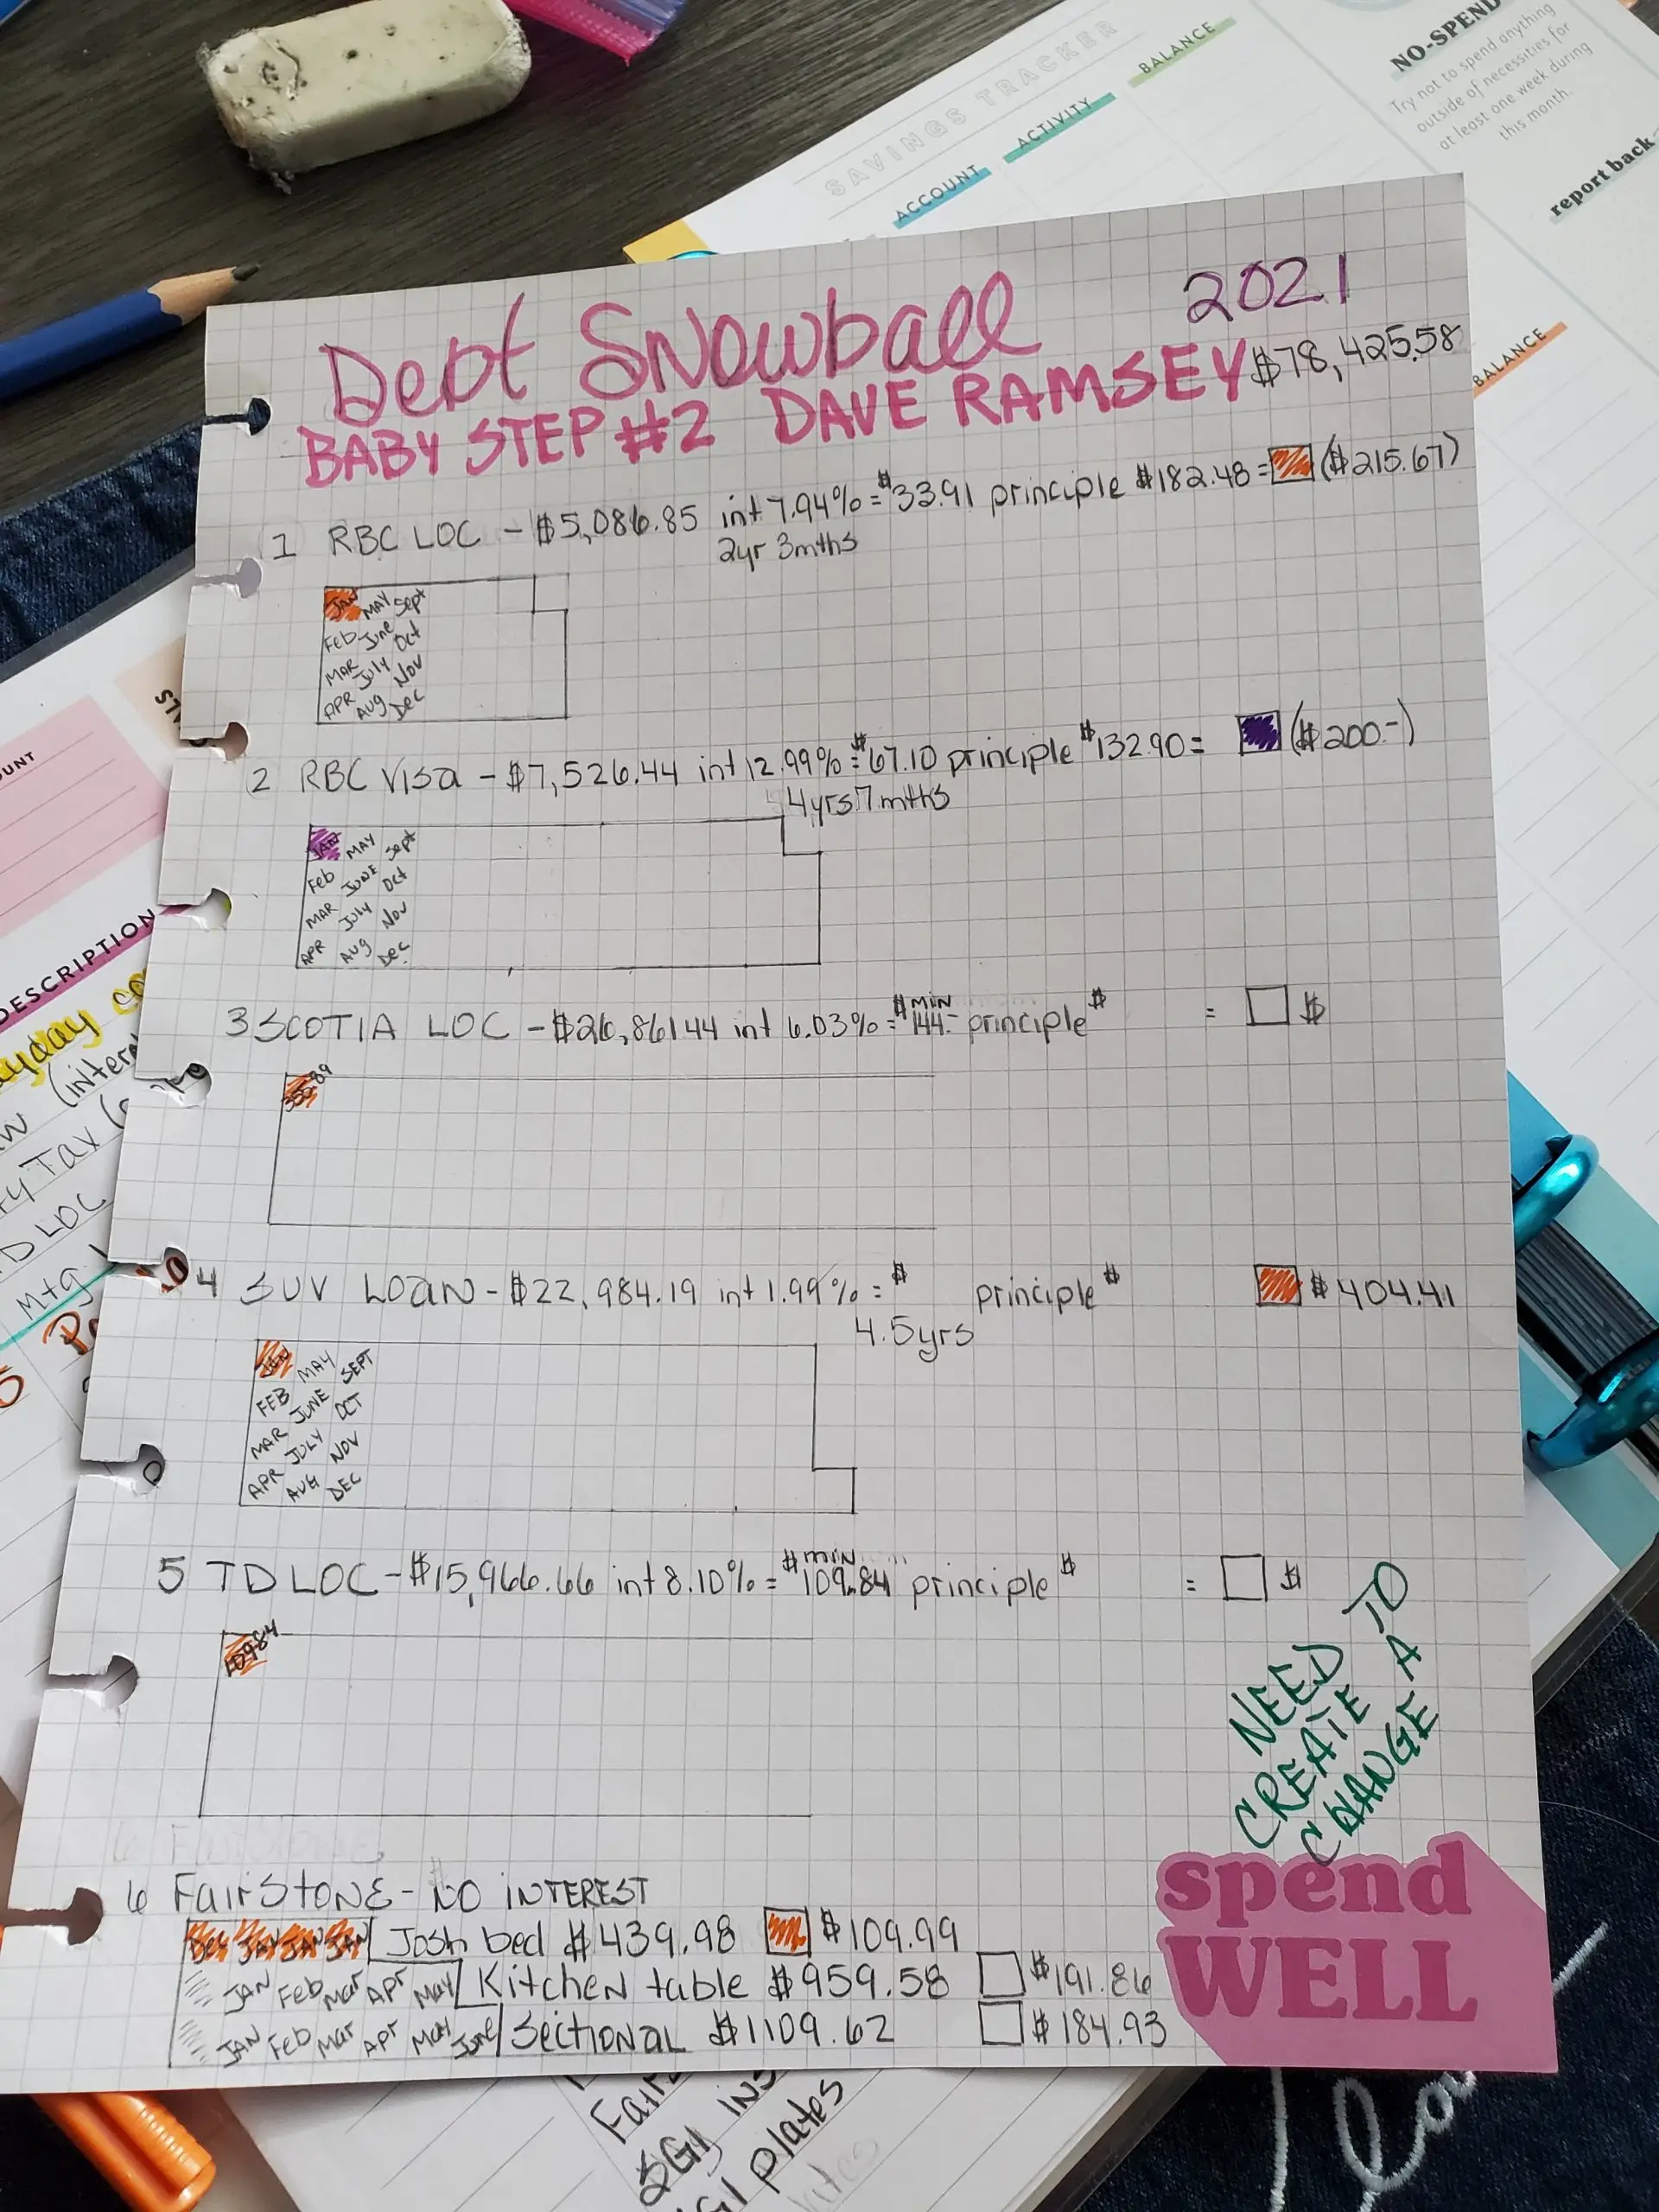 SAVINGS TRACKER
ACCOUNT
ACTIVITY
BALANCE
NO-SPEND
Try not to spend anything
outside of necessities for
at least one week during
this month.
report back
BALANCE
Debt Snowball 2021
BABY STEP #2 DAVE RAMSEY $78,425.58
1 RBC LOC - $5,086.85 int 7.94% = $33.91 principle $182.48 = ($215.67)
2yr 3mths
JAN MAY Sept
Feb June Oct
MAR July Nov
APR Aug Dec
2 RBC Visa - $7,526.44 int 12.99% = $67.10 principle $132.90 = ($200.-)
4yrs 7mths
JAN MAY Sept
Feb JUNE Oct
MAR July Nov
APR Aug Dec
3 SCOTIA LOC - $26,861.44 int 6.03% = $ MIN 144.- principle $ = $
355.89
4 SUV LOAN - $22,984.19 int 1.99% = $ principle $ $404.41
4.5yrs
JAN MAY SEPT
FEB JUNE OCT
MAR JULY NOV
APR AUG DEC
5 TD LOC - $15,966.66 int 8.10% = $ MIN 109.84 principle $ = $
109.84
NEED TO
CREATE A
CHANGE
6 FairStone - NO INTEREST
Dec JAN JAN JAN Josh bed $439.98 $109.99
JAN Feb Mar APr May Kitchen table $959.58 $191.86
JAN Feb Mar APr May June Sectional $1109.62 $184.93
spend
WELL
UNT
DESCRIPTION
(inter
Tax
LOC
Mtg
SGI INS
plates